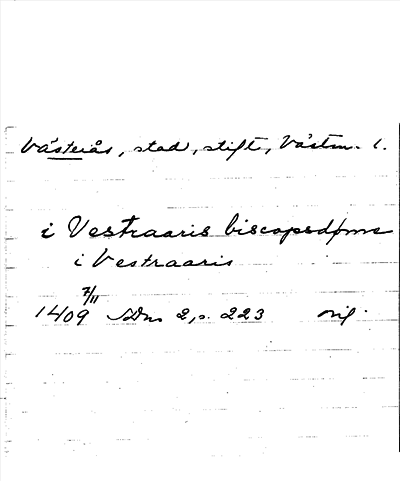 Västerås, stad, stift, Västm. l.
i Vestraaris biscopsdøme
i Vestraaris
1409 7/11 SDns 2, s. 223 orig.